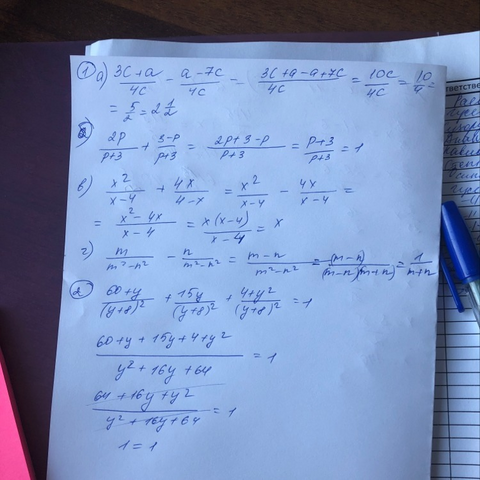 ① а) (3c+a)/4c - (a-7c)/4c = (3c+a-a+7c)/4c = 10c/4c = 10/4 =
= 5/2 = 2 1/2
б) 2p/(p+3) + (3-p)/(p+3) = (2p+3-p)/(p+3) = (p+3)/(p+3) = 1
в) x²/(x-4) + 4x/(4-x) = x²/(x-4) - 4x/(x-4) =
= (x²-4x)/(x-4) = x(x-4)/(x-4) = x
г) m/(m²-n²) - n/(m²-n²) = (m-n)/(m²-n²) = (m-n)/(m-n)(m+n) = 1/(m+n)
② (60+y)/(y+8)² + 15y/(y+8)² + (4+y²)/(y+8)² = 1
(60+y+15y+4+y²)/(y²+16y+64) = 1
(64+16y+y²)/(y²+16y+64) = 1
1=1